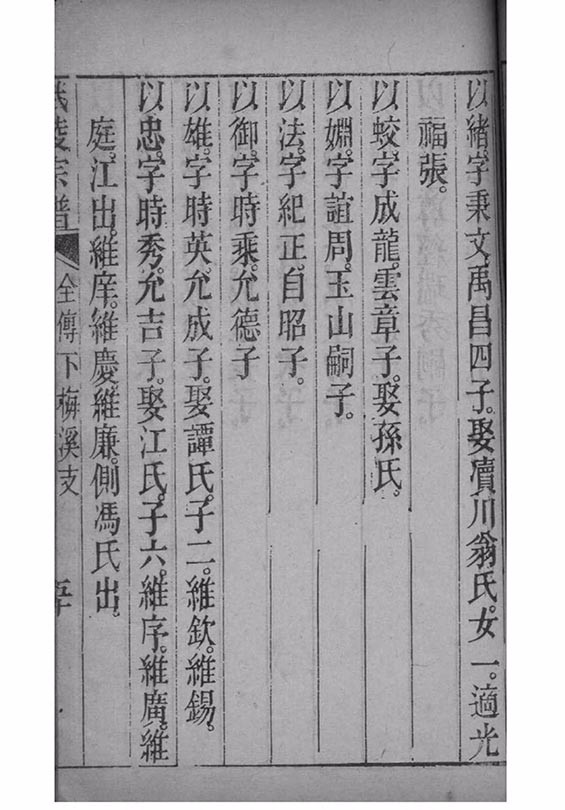 以緒。字秉文。禹昌四子。娶賣川翁氏。女一。適光
福張。
以蛟。字成龍。雲章子。娶孫氏。
以嫻。字誼周。玉山嗣子。
以法。字紀正。自昭子。
以御。字時乘。允德子
以雄。字時英。允成子。娶譚氏。子二。維欽。維錫。
以忠。字時秀。允吉子。娶江氏。子六。維序。維廣。維
庭。江出。維庠。維慶。維廉。側馮氏出。
宗譜 全傳下梅溪支